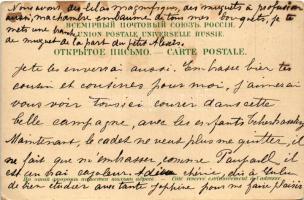 Nous avons des lilas magnifiques, des muguets à profusion
aussi, ma chambre embaume de tous mes bouquets, je te
mets une branche
de muguet de la part du petit Alexis.
ВСЕМІРНЫЙ ПОЧТОВЫЙ СОЮЗЪ. РОССІЯ.
UNION POSTALE UNIVERSELLE. RUSSIE.
ОТКРЫТОЕ ПИСЬМО. — CARTE POSTALE.
Je te les enverrai aussi. Embrasse bien tes
cousin et cousines pour moi, j'aimerai
vous voir tous ici courir dans cette
belle campagne, avec les enfants
Maintenant, le cadet ne veut plus me quitter, il
ne fait que m'embrasser, comme il
est un vrai cajoleur. chérie, dis à Lulu
de bien étudier avec tante Joséphine pour me faire plaisir